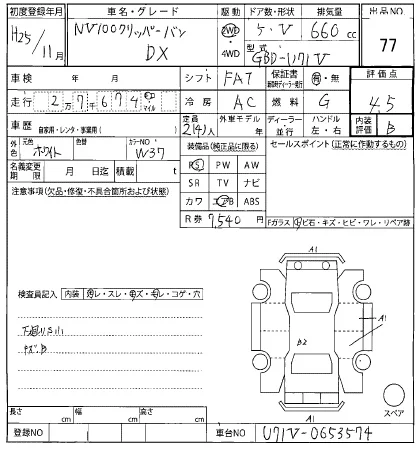 初度登録年月 車名・グレード 駆動 ドア数・形状 排気量 出品NO
H25/11月 NV100クリッパーバン DX 2WD 4WD 5・V 660cc 77
型式 GBD-U71V
車検 年 月 シフト FAT 保証書 有・無 評価点
走行 2万7千674 km マイル 冷房 AC 燃料 G 4.5
車歴 自家用・レンタ・事業用( ) 定員 2(4)人 外車モデル 年 ディーラー・並行 ハンドル 左・右 内装評価 B
外色 元色 ホワイト 色替 カラーNO W37 装備品(純正品に限る) セールスポイント(正常に作動するもの)
名義変更期限 月 日迄 積載 t PS PW AW
注意事項(欠品・修復・不具合箇所および状態) SR TV ナビ
カワ エアB ABS
R券 7,540円 Fガラス 飛石・キズ・ヒビ・ワレ・リペア跡
A1
検査員記入 内装 ・スレ・キズ・ ・コゲ・穴
A1
下廻りサビ小
キズB
B2
スペア
長さ cm 幅 cm 高さ cm
A1
登録NO 車台NO U71V-0653574